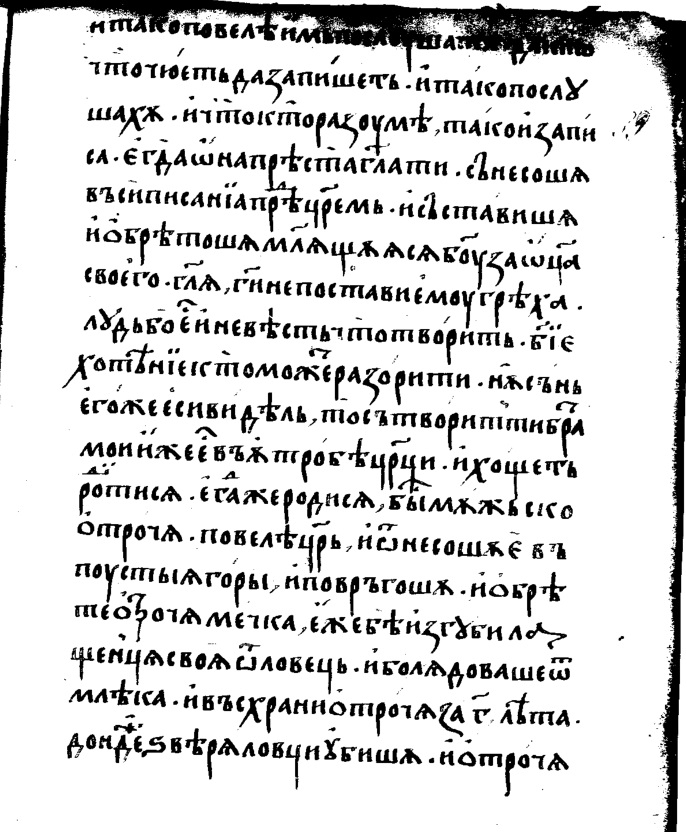 и҆тако повелѣ и҆мь послоушати
что чюе҆ть да запишеть · и҆ тако послꙋ
шахѫ · и҆ что кто разоумѣ, тако и҆ запи
са · е҆гда ѡ҆на прѣста гл҃ати · сънесошѧ
въси писанїа прѣⷣ цр҃емь · и҆ съставишѧ
и҆ ѻ҆брѣтошѧ млѧщѫѧсѧ бо҃у за ѡ҆ц҃а
своего · гл҃ѧ, гн҃ не постави е҆моу грѣха ·
лꙋдь бо е҆ⷭ҇ и҆ не вѣсть что творить · бж҃їе
хотѣнїе кто може҆ⷮ разорити · нѫ сънь
е҆гоже е҆си видѣль, то сътворит ти бра҃
мои и҆же е҆ⷭ҇ въ ѫтробѣ цр҃ци · и҆ хощеть
родитисѧ · е҆гⷣаже родисѧ, бы҆ⷭ҇ мѫжьско
ѻ҆трочѧ · повелѣ цр҃ь, и҆ ѿнесошѫ е҆ въ
поустыѧ горы, и҆ повръгошѧ · и҆ ѻ҆брѣ
те ѻ҆трочѧ мечка, е҆ѫже бѣ и҆згꙋбила
щенцѧ своѧ ѿ ловець · и҆ болѧдоваше ѿ
млѣка · и҆ въсхрани ѻ҆трочѧ за г҃, лѣта ·
дондⷤе ѕвѣрѧ ловци ꙋбишѧ · и҆ ѻ҆трочѧ